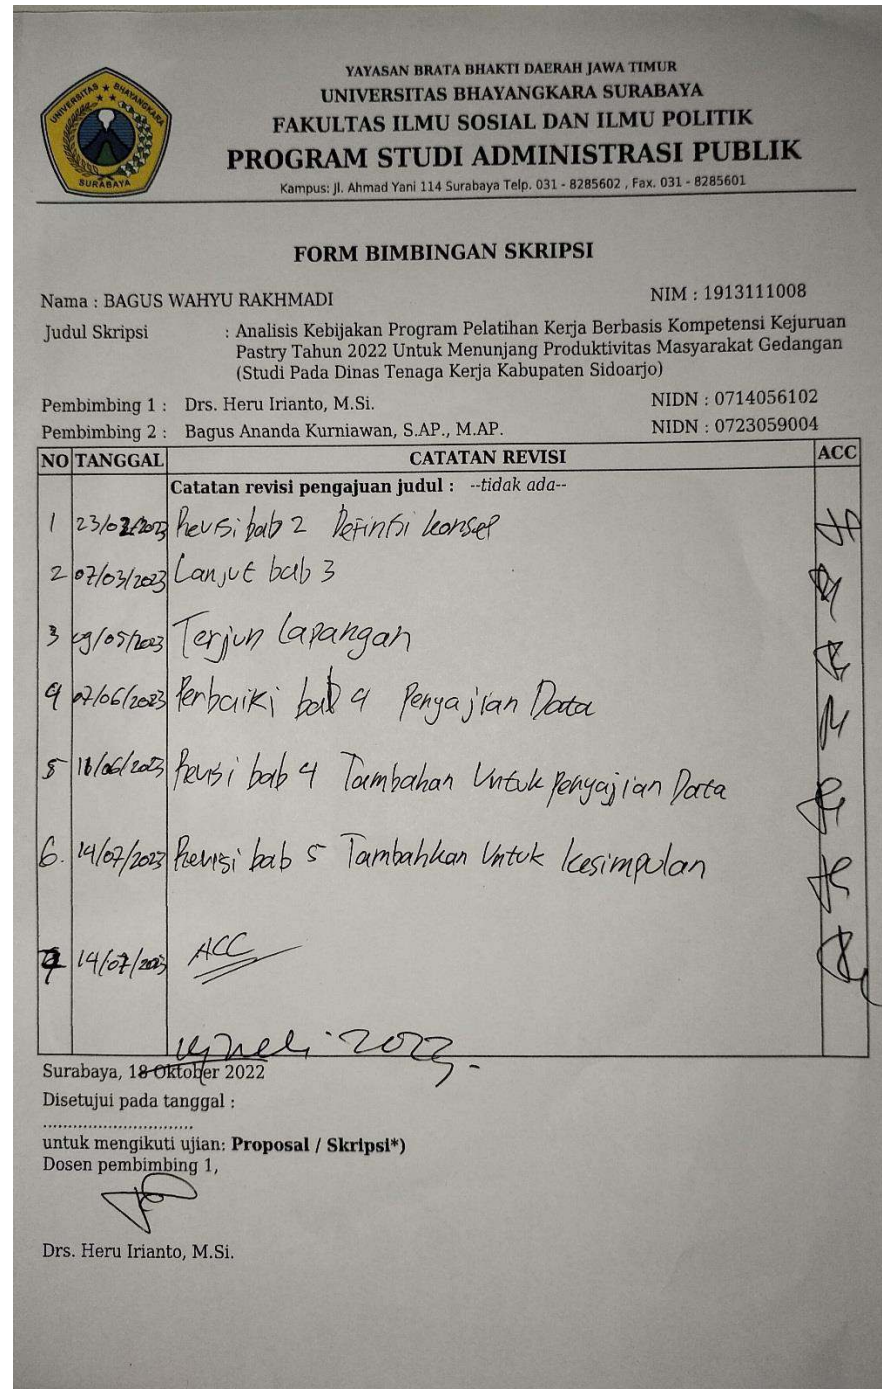 UNIVERSITAS ★ BHAYANGKARA
SURABAYA
YAYASAN BRATA BHAKTI DAERAH JAWA TIMUR
UNIVERSITAS BHAYANGKARA SURABAYA
FAKULTAS ILMU SOSIAL DAN ILMU POLITIK
PROGRAM STUDI ADMINISTRASI PUBLIK
Kampus: Jl. Ahmad Yani 114 Surabaya Telp. 031 - 8285602 , Fax. 031 - 8285601
FORM BIMBINGAN SKRIPSI
Nama : BAGUS WAHYU RAKHMADI NIM : 1913111008
Judul Skripsi : Analisis Kebijakan Program Pelatihan Kerja Berbasis Kompetensi Kejuruan
Pastry Tahun 2022 Untuk Menunjang Produktivitas Masyarakat Gedangan
(Studi Pada Dinas Tenaga Kerja Kabupaten Sidoarjo)
Pembimbing 1 : Drs. Heru Irianto, M.Si. NIDN : 0714056102
Pembimbing 2 : Bagus Ananda Kurniawan, S.AP., M.AP. NIDN : 0723059004
NO TANGGAL CATATAN REVISI ACC
Catatan revisi pengajuan judul : --tidak ada--
1 23/02/2023 Revisi bab 2 Definisi konsep
2 07/03/2023 Lanjut bab 3
3 /05/2023 Terjun Lapangan
4 07/06/2023 Perbaiki bab 4 Penyajian Data
5 /06/2023 Revisi bab 4 Tambahan Untuk penyajian Data
6. 14/07/2023 Revisi bab 5 Tambahkan Untuk kesimpulan
7 14/07/2023 ACC
2023.
Surabaya, 18 Oktober 2022
Disetujui pada tanggal :
..............................
untuk mengikuti ujian: Proposal / Skripsi*)
Dosen pembimbing 1,
Drs. Heru Irianto, M.Si.